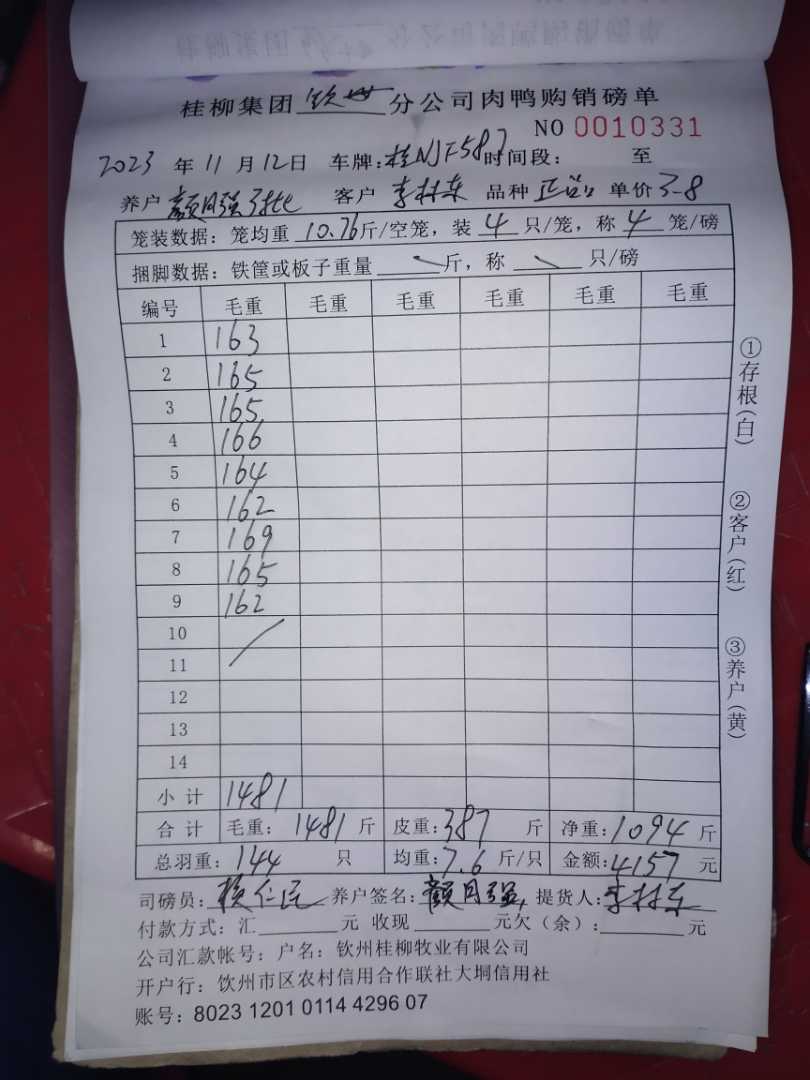 桂柳集团 钦州 分公司肉鸭购销磅单
NO 0010331
2023 年 11 月 12 日 车牌: 桂NJF587 时间段: 至
养户 颜月强 客户 李村东 品种 正品 单价 3.8
笼装数据: 笼均重 10.76 斤/空笼, 装 4 只/笼, 称 4 笼/磅
捆脚数据: 铁筐或板子重量 斤, 称 只/磅
编号 毛重 毛重 毛重 毛重 毛重 毛重
1 163
2 165
3 165
4 166
5 164
6 162
7 169
8 165
9 162
10
11
12
13
14
小计 1481
合计 毛重: 1481 斤 皮重: 387 斤 净重: 1094 斤
总羽重: 144 只 均重: 7.6 斤/只 金额: 4157 元
司磅员: 养户签名: 颜月强 提货人: 李村东
付款方式: 汇 元 收现 元欠(余): 元
公司汇款帐号: 户名: 钦州桂柳牧业有限公司
开户行: 饮州市区农村信用合作联社大垌信用社
账号: 8023 1201 0114 4296 07
①存根(白)
②客户(红)
③养户(黄)